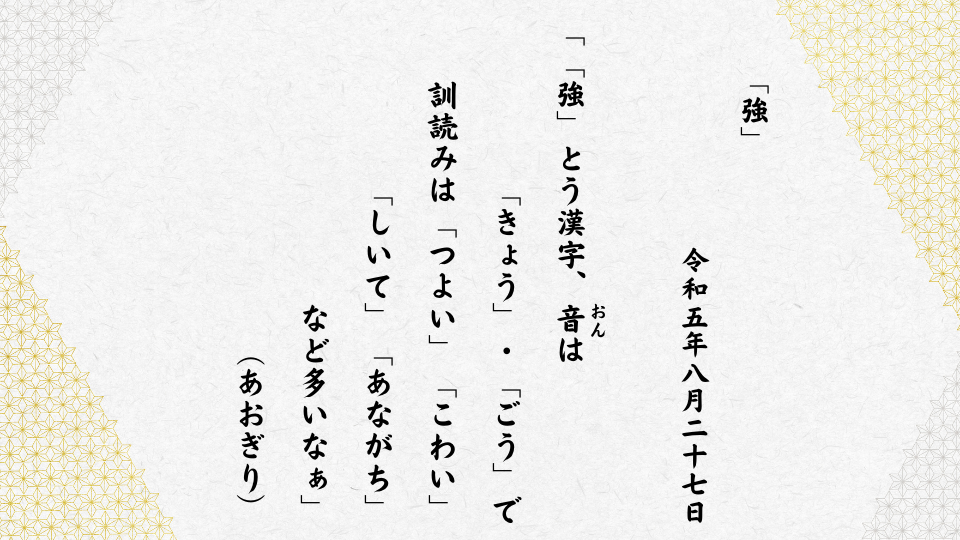 「強」
令和五年八月二十七日
「「強」とう漢字、音は
おん
「きょう」・「ごう」で
訓読みは「つよい」「こわい」
「しいて」「あながち」
など多いなぁ」
(あおぎり)